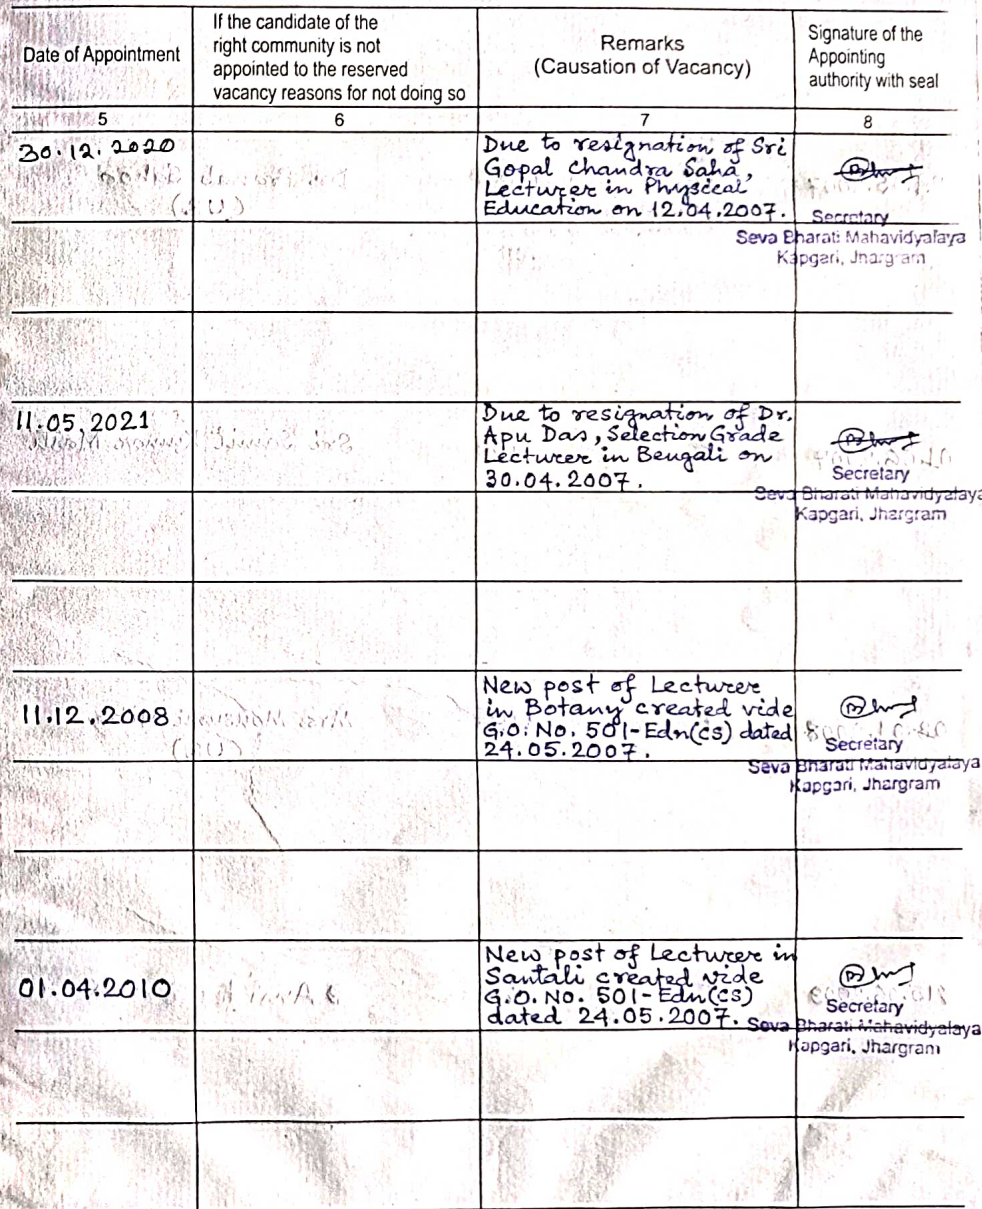 Date of Appointment
If the candidate of the
right community is not
appointed to the reserved
vacancy reasons for not doing so
Remarks
(Causation of Vacancy)
Signature of the
Appointing
authority with seal
5
6
7
8
30.12.2020
Due to resignation of Sri
Gopal Chandra Saha,
Lecturer in Physical
Education on 12.04.2007.
Secretary
Seva Bharati Mahavidyalaya
Kapgari, Jhargram
11.05.2021
Due to resignation of Dr.
Apu Das, Selection Grade
Lecturer in Bengali on
30.04.2007.
Secretary
Seva Bharati Mahavidyalaya
Kapgari, Jhargram
11.12.2008
New post of Lecturer
in Botany created vide
G.O. No. 501-Edn(cs) dated
24.05.2007.
Secretary
Seva Bharati Mahavidyalaya
Kapgari, Jhargram
01.04.2010
New post of Lecturer in
Santali created vide
G.O. No. 501-Edn(cs)
dated 24.05.2007.
Secretary
Seva Bharati Mahavidyalaya
Kapgari, Jhargram